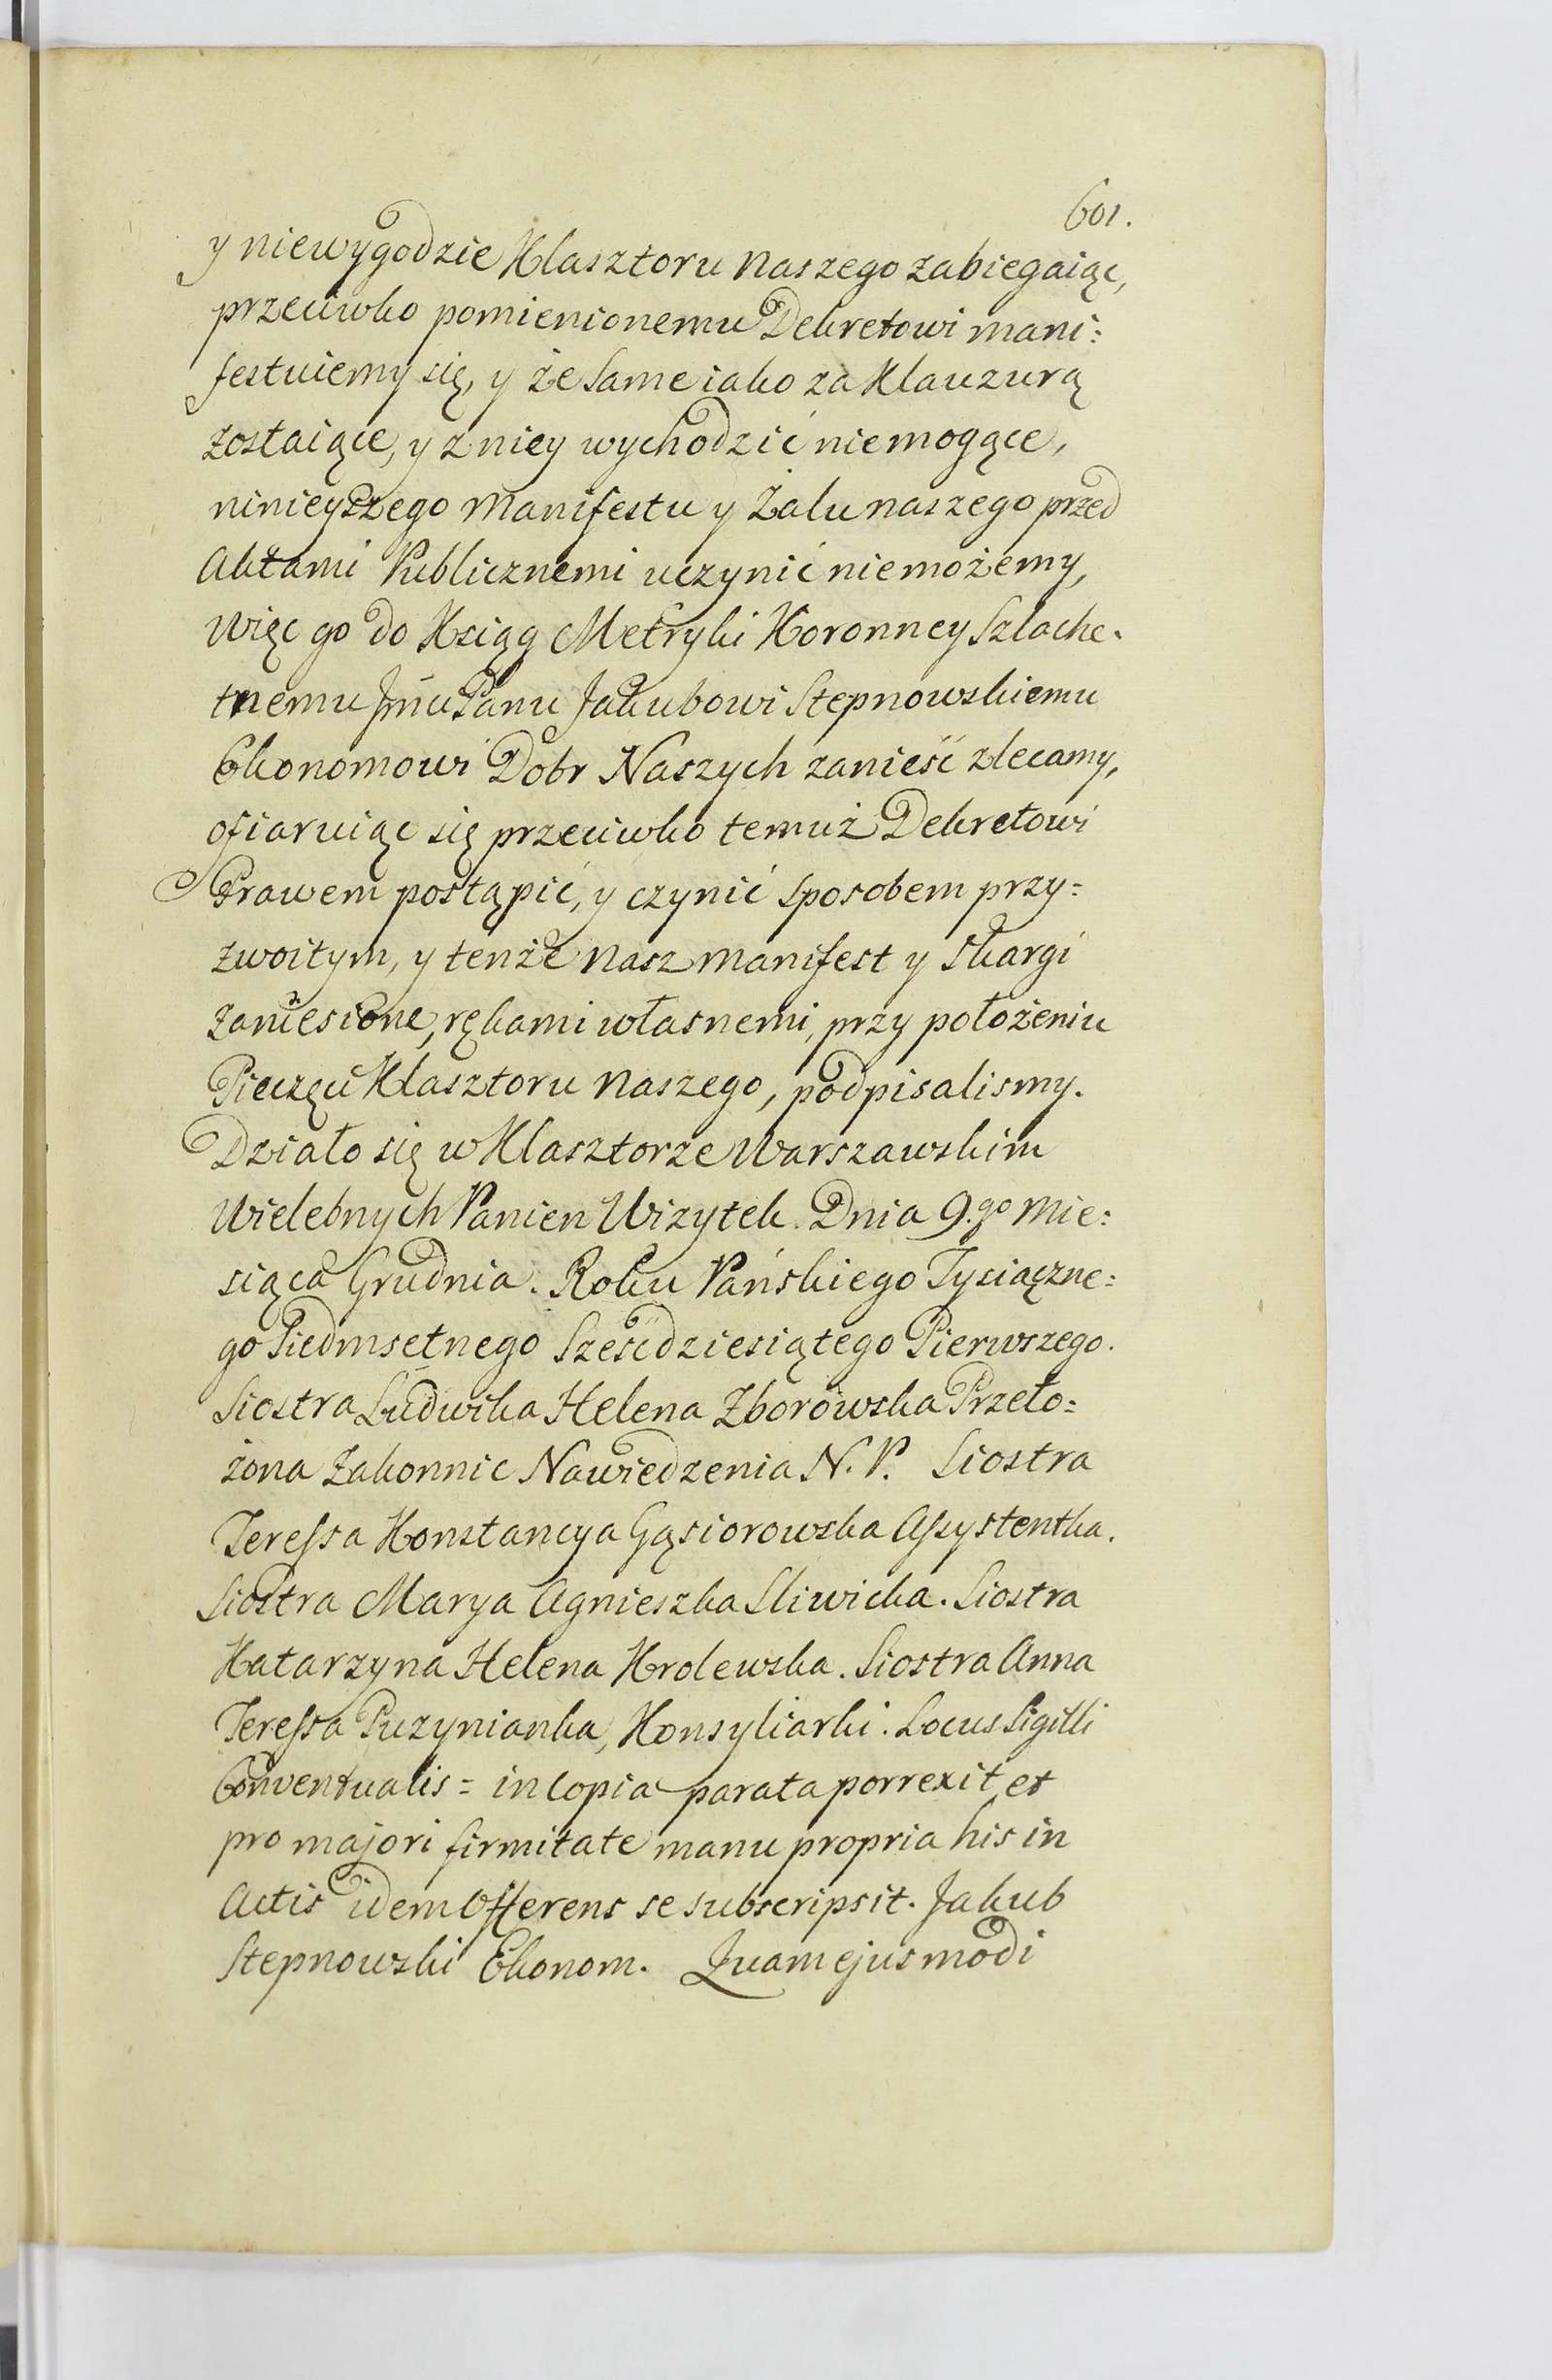 601.
y niewygodzie Klasztoru Naszego zabiegaiąc,
przeciwko pomienionemu Dekretowi mani=
festuiemy się, y że Same iako za Klauzurą
zostaiące, y z niey wychodzić niemogące,
ninieyszego Manifestu y Żalu naszego przed
Aktami Publicznemi uczynić niemożemy,
Więc go do Ksiąg Metryki Koronney Szlache=
tnemu Jmću Panu Jakubowi Stepnowskiemu
Ekonomowi Dobr Naszych zanieść zlecamy,
ofiaruiąc się przeciwko temuż Dekretowi
Prawem postąpić, y czynić sposobem przy=
zwoitym, y tenże Nasz Manifest y Skargi
zaniesione, rękami własnemi, przy położeniu
Pieczęci Klasztoru Naszego, podpisalismy.
Działo się w Klasztorze Warszawskim
Wielebnych Panien Wizytek. Dnia 9.go Mie=
siąca Grudnia. Roku Pańskiego Tysiączne=
go Siedmsetnego Sześćdziesiątego Pierwszego.
Siostra Ludwika Helena Zborowska Przeło=
żona Zakonnic Nawiedzenia N. P. Siostra
Teressa Konstancya Gąsiorowska Assystentka.
Siostra Marya Agnieszka Sliwicka. Siostra
Katarzyna Helena Krolewska. Siostra Anna
Teressa Puzynianka, Konsyliarki. Locus Sigilli
Conventualis = in Copia parata porrexit et
pro majori firmitate manu propria his in
Actis idem Offerens se subscripsit. Jakub
Stepnowski Ekonom. Quam ejusmodi